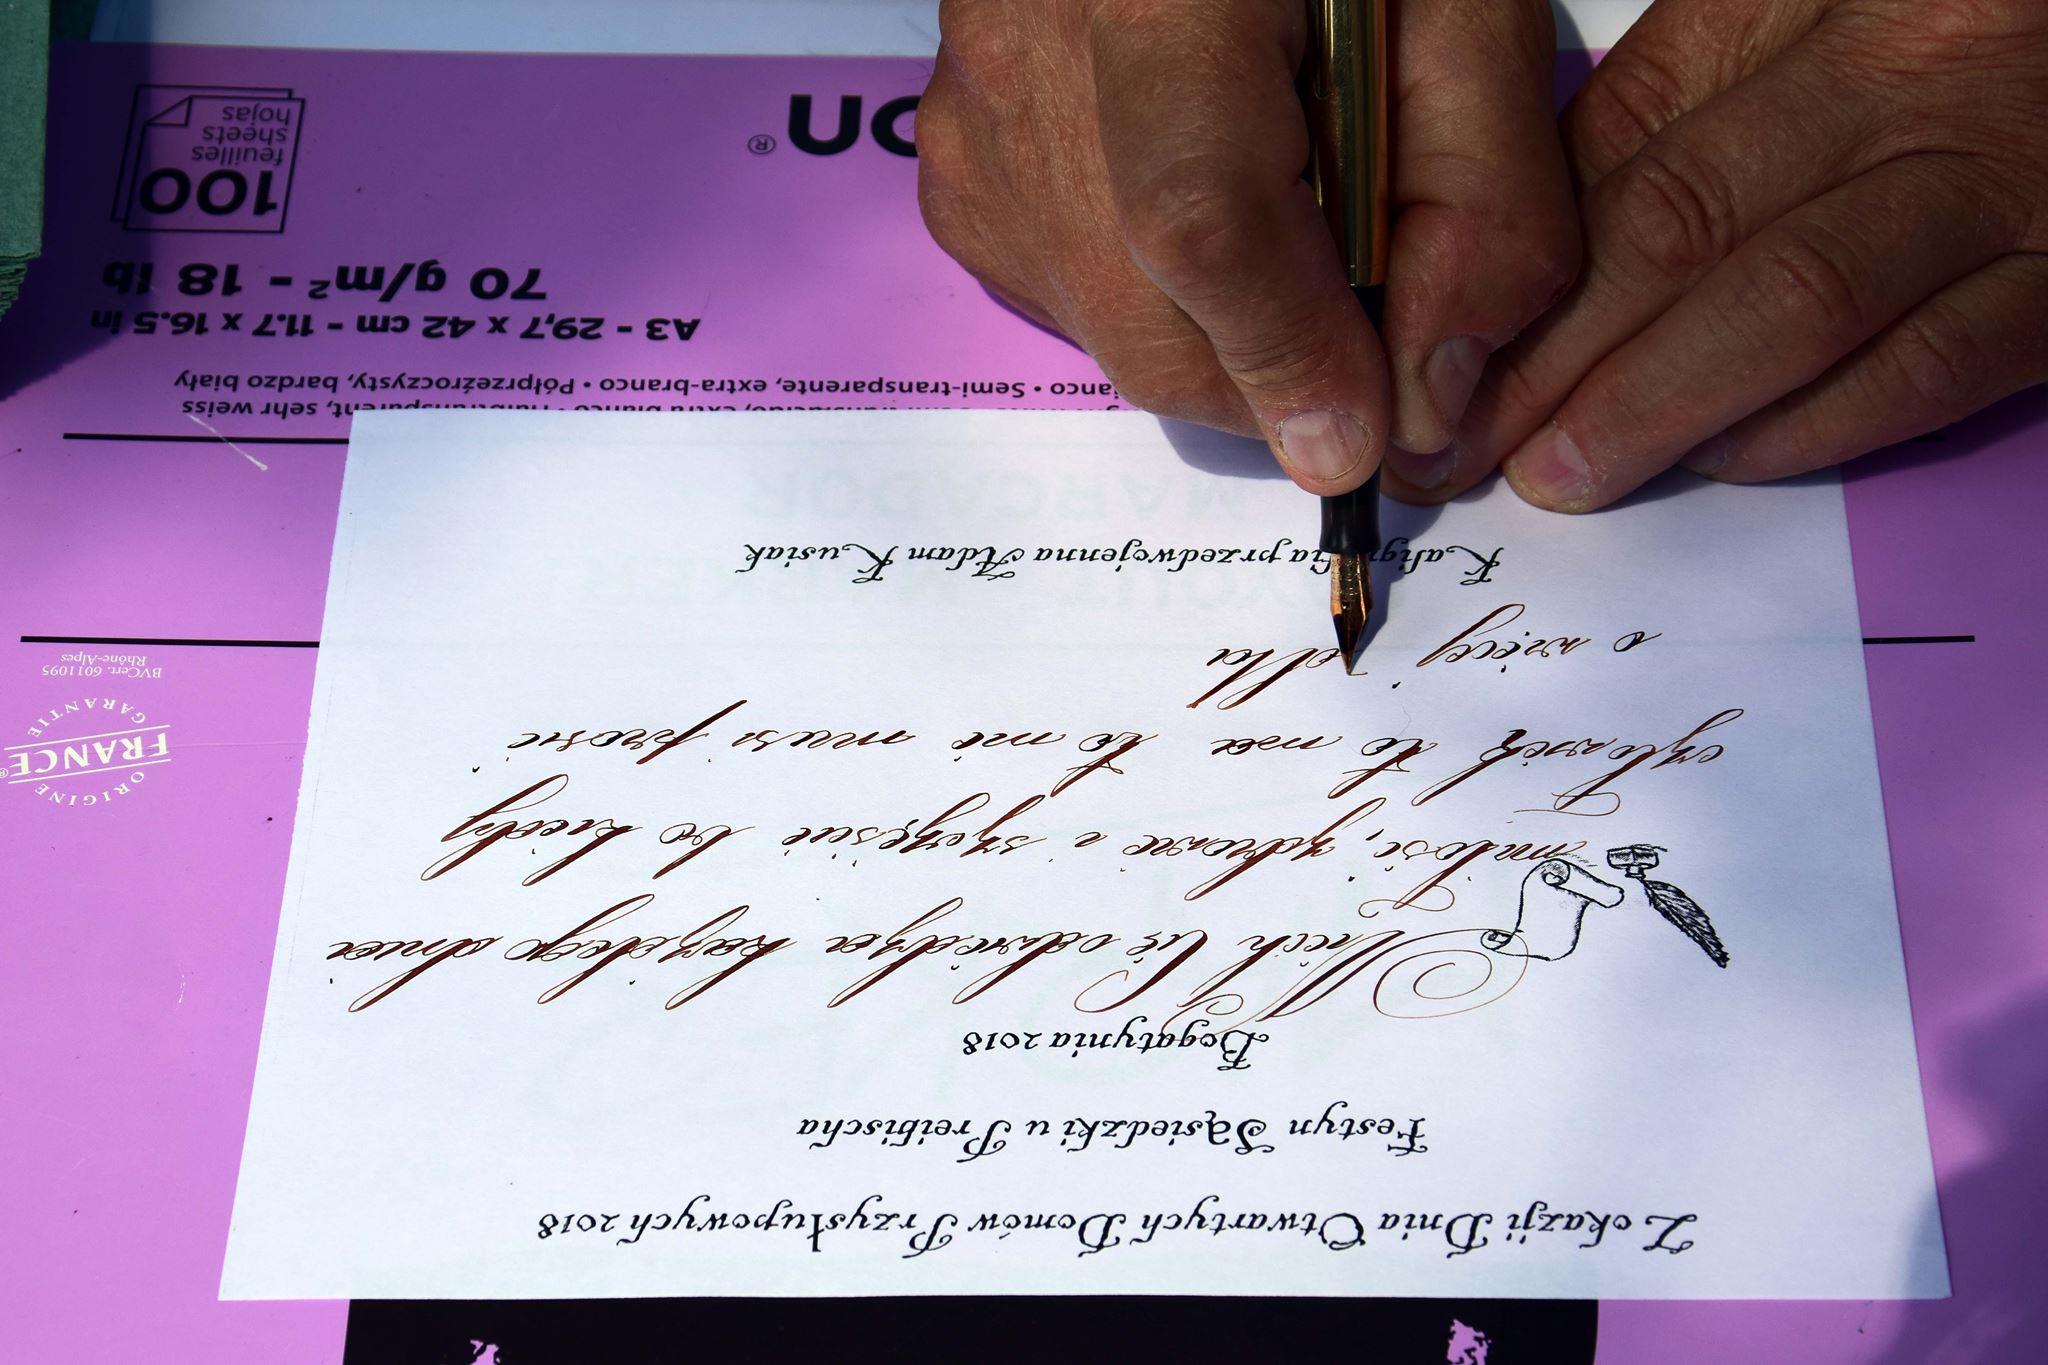 Z okazji Dnia Otwartych Domów Przysłupowych 2018
Festyn Sąsiedzki u Preibischa
Bogatynia 2018
Niech Cię odwiedza każdego dnia
miłość, zdrowie i szczęście bo kiedy
człowiek to ma to nie musi prosić
o więcej dla
Kaligrafia przedwojenna Adam Kusiak
MARCADOR
ORIGINE
FRANCE®
GARANTIE
BVCert. 6011095
Rhône-Alpes
sehr weiss
• Semi-transparente, extra-branco • Półprzeźroczysty, bardzo biały
A3 - 29,7 x 42 cm - 11.7 x 16.5 in
70 g/m² - 18 lb
100
feuilles
sheets
hojas
on®